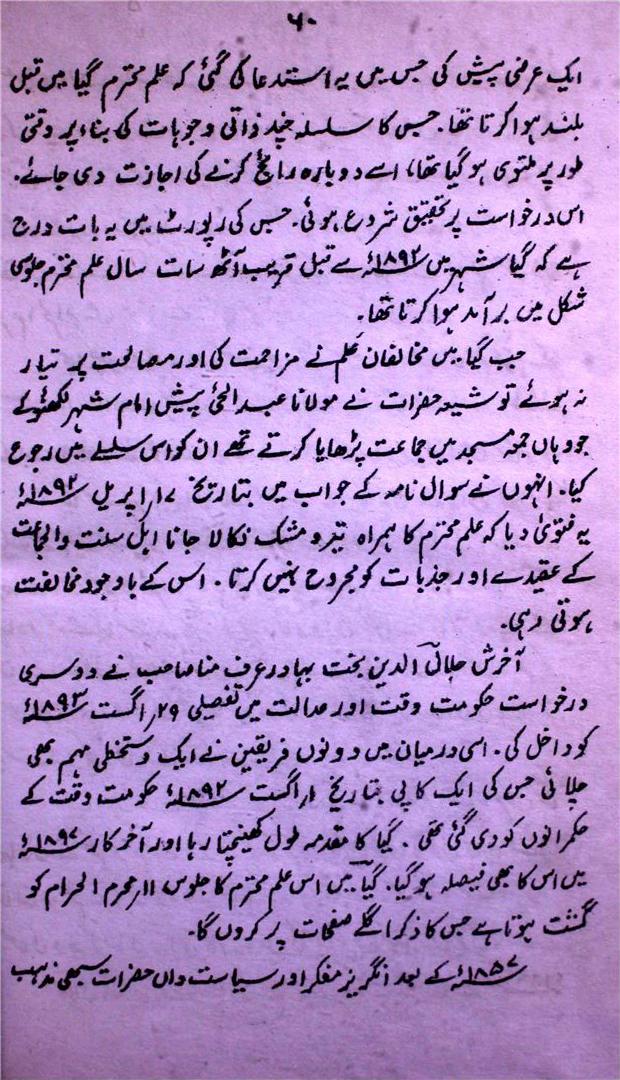 ۶۰
ایک عرضی پیش کی جس میں یہ استدعا کی گئی کہ علم محترم گیا میں قبل
بلند ہوا کرتا تھا۔ جس کا سلسلہ چند ذاتی وجوہات کی بناء پر وقتی
طور پر ملتوی ہو گیا تھا، اسے دوبارہ رائج کرنے کی اجازت دی جائے۔
اس درخواست پر تحقیق شروع ہوئی۔ جس کی رپورٹ میں یہ بات درج
ہے کہ گیا شہر میں ۱۸۹۲ء سے قبل قریب آٹھ سات سال علم محترم جلوس
شکل میں برآمد ہوا کرتا تھا۔
جب گیا میں مخالفان علم نے مزاحمت کی اور مصالحت پر تیار
نہ ہوئے تو شیعہ حضرات نے مولانا عبدالحئ پیش امام شہر لکھنؤ کے
جو وہاں جمعہ مسجد میں جماعت پڑھایا کرتے تھے ان کو اس سلسلے میں رجوع
کیا۔ انہوں نے سوال نامہ کے جواب میں بتاریخ ۱۷ اپریل ۱۸۹۲ء
یہ فتویٰ دیا کہ علم محترم کا ہمراہ تیر و مشک نکالا جانا اہل سنت والجماعت
کے عقیدے اور جذبات کو مجروح نہیں کرتا۔ اس کے باوجود مخالفت
ہوتی رہی۔
آخرش جلال الدین بخت بہادر عرف مناصاحب نے دوسری
درخواست حکومت وقت اور عدالت میں تفصیلی ۲۹ اگست ۱۸۹۳ء
کو داخل کی۔ اسی درمیان میں دونوں فریقین نے ایک دستخطی مہم بھی
چلائی جس کی ایک کاپی بتاریخ اگست ۱۸۹۲ء حکومت وقت کے
حکمرانوں کو دی گئی تھی۔ گیا کا مقدمہ طول کھینچتا رہا اور آخر کار ۱۸۹۷ء
میں اس کا بھی فیصلہ ہو گیا۔ گیا میں اس علم محترم کا جلوس ۱۱ محرم الحرام کو
گشت ہوتا ہے جس کا ذکر اگلے صفحات پر کروں گا۔
۱۸۵۷ء کے بعد انگریز مفکر اور سیاست داں حضرات سبھی مذہب